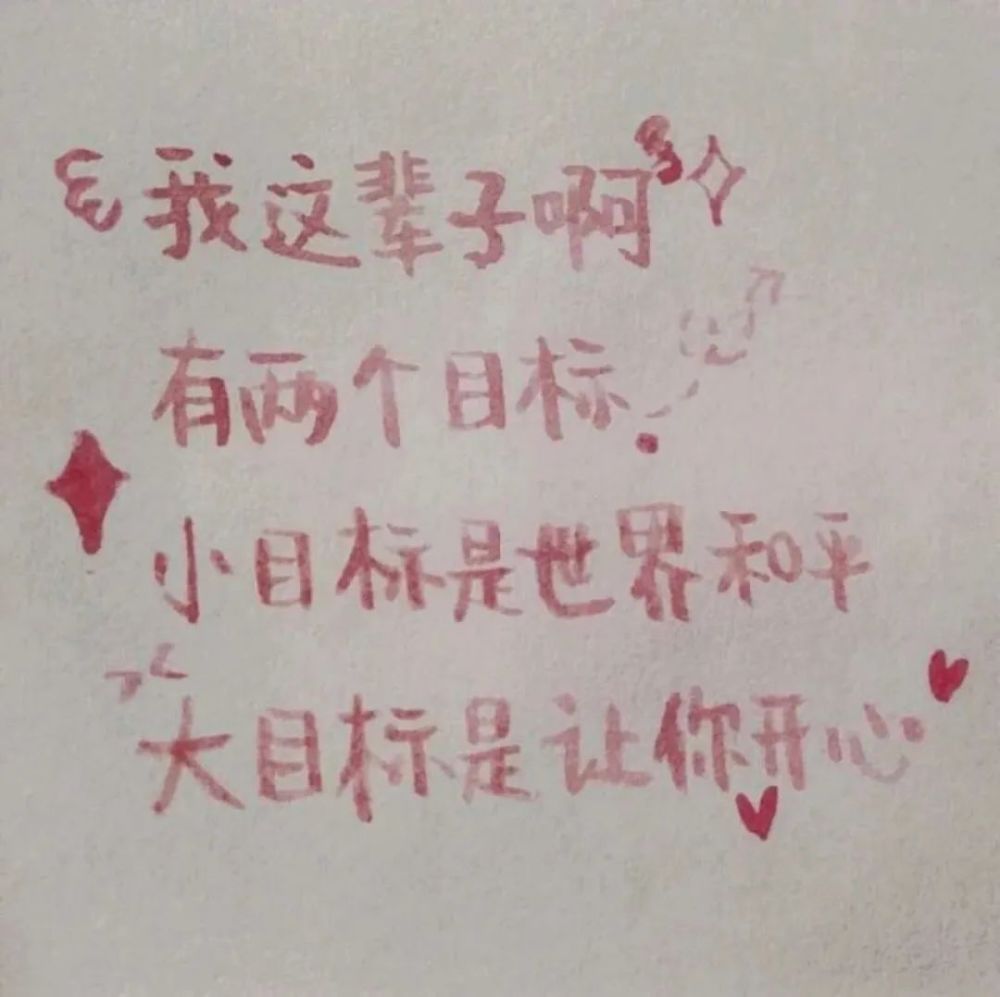 我这辈子啊
有两个目标
小目标是世界和平
大目标是让你开心